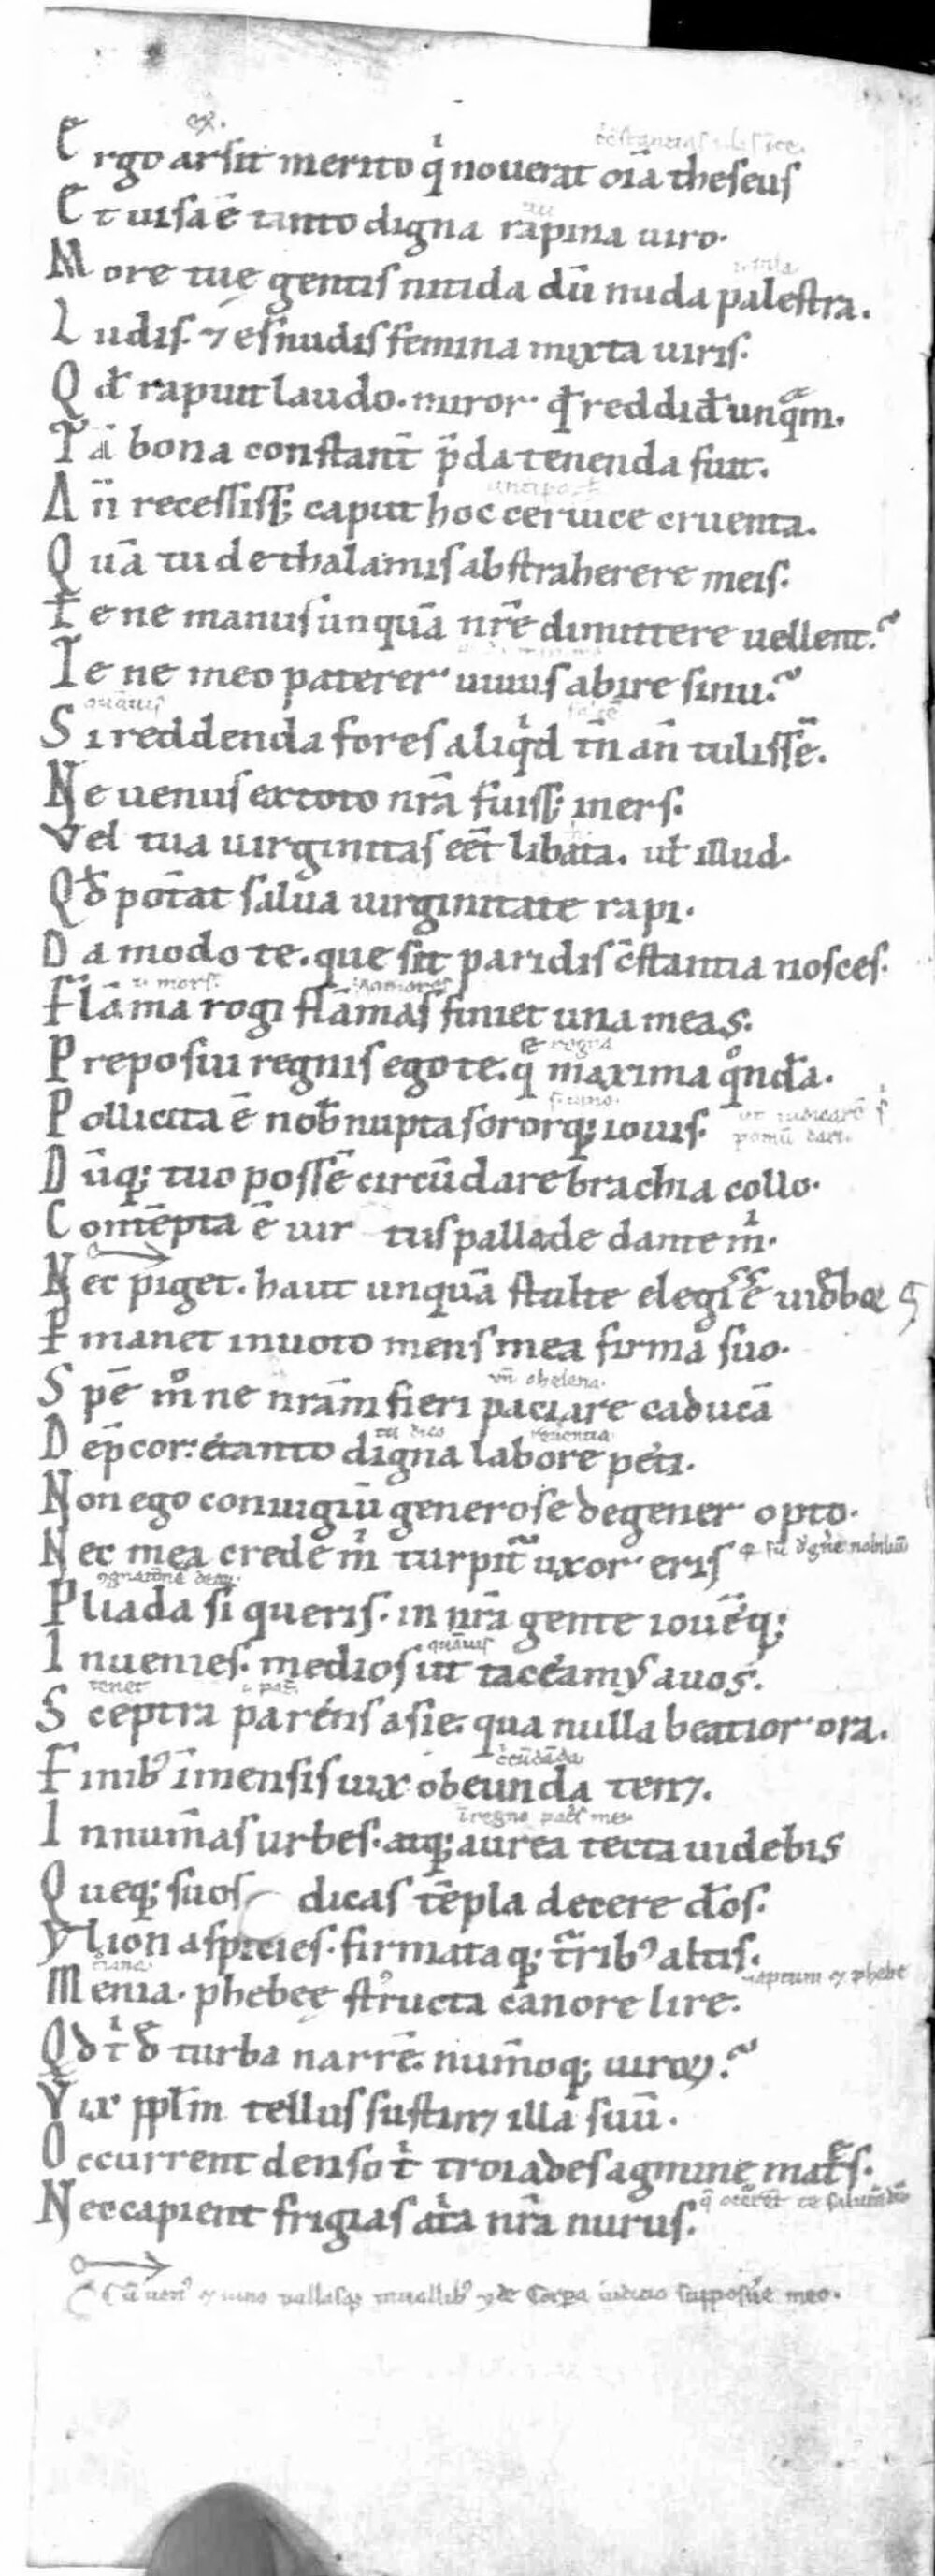 Ergo arsit merito qͥ nouerat oīa theseus
Et uisa ē tanto digna rapina uiro.
More tuę gentis nitida dū nuda palestra.
Ludis. ⁊ es nudis femina mixta uiris.
Qđ rapuit laudo. miror. qđ reddiđ unqᷓm.
Tā bona constant̄ p̄da tenenda fuit.
An̄ recessiss; caput hoc ceruice cruenta.
Quā tu de thalamis abstraherere meis.
Te ne manus unquā nr̄e dimittere uellent.
Te ne meo paterer uiuus abire sinu.
quāuis
Si reddenda fores aliqͥd tn̄ an̄ tulissē.
Ne uenus ex toto nr̄a fuiss; iners.
Vel tua uirginitas eēt libata. uł illud.
Qđ pot̄at salua uirginitate rapi.
Da modo te. que sit paridis c̄stantia nosces.
Flāma rogi flāmas finiet una meas.
Preposui regnis ego te. q̄ maxima qͦndā.
Pollicita ē nob̄ nupta sororq; iouis.
Dūq; tuo possē circūdare brachia collo.
Contēpta ē uirtus pallade dante m̄.
Nec piget. haut unquā stulte elegisse uideboꝛ
P̱manet in uoto mens mea firma suo.
Spē mͦ ne nrām fieri paciare caducā
Dep̄cor: ė tanto digna labore peti.
Non ego coniugiū generose degener opto.
Nec mea crede m̄ turpiт̄ uxor eris
Pliada si queris. in nr̄a gente iouēq;
quāuis
Inuenies. medios ut taceamꝰ auos.
tenet
Sceptra parens asie. qua nulla beatior ora.
Finibꝰ īmensis uix obeunda tenꝫ.
Innum̄as urbes. atq; aurea tecta uidebis
Queq; suos dicas tēpla decere đos.
Ylion aspicies. firmataq; t̄ribꝰ altis.
Menia. phebeę structa canore lire.
Qđ tͥ đ turba narrē. num̄oq; uiroꝝ.
Vix ppłm tellus sustinꝫ illa suū.
Occurrent denso tͥ troiades agmine mat̄s.
Nec capient frigias atͥa nr̄a nurus.